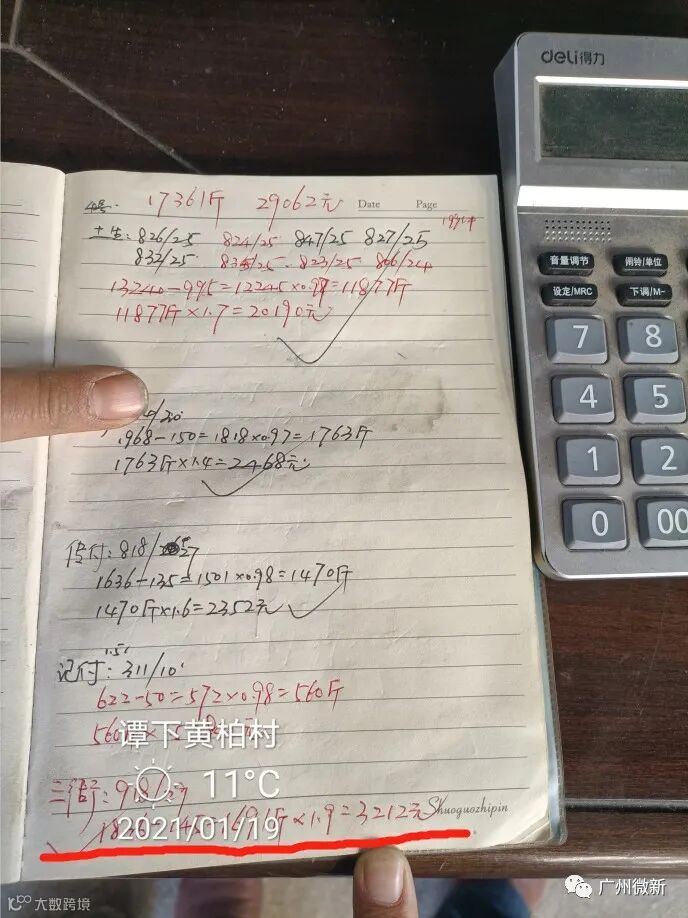 deli得力
17361斤 29062元
Date Page
826/25 824/25 847/25 827/25
832/25 823/25 806/24
13240-995=12245×0.97=11877斤
11877斤×1.7=20190元
音量调节 闹铃/单位
设定/MRC 下调/M-
7 8
4 5
1 2
0 00
968-150=1818×0.97=1763斤
1763斤×1.4=2468元
付:818/
1636-135=1501×0.98=1470斤
1470斤×1.6=2352元
1.5
记付:311/10
622-50=572×0.98=560斤
560
谭下黄柏村
11°C
2021/01/19
918/27
1691斤×1.9=3212元
Shuoguozhipin
大数跨境
广州微新